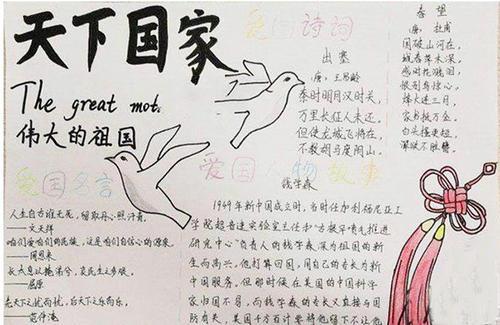 天下国家
The great mot.
伟大的祖国
爱国诗词
出塞
唐：王昌龄
秦时明月汉时关，
万里长征人未还，
但使龙城飞将在，
不教胡马度阴山。
春望
唐：杜甫
国破山河在，
城春草木深，
感时花溅泪，
恨别鸟惊心，
烽火连三月，
家书抵万金，
白头搔更短，
浑欲不胜簪。
爱国名言
人生自古谁无死，留取丹心照汗青。
——文天祥
咱们爱咱们的民族，这是咱们自信心的源泉。
——周恩来
长太息以掩涕兮，哀民生之多艰，
——屈原
先天下之忧而忧，后天下之乐而乐，
——范仲淹
爱国人物故事
钱学森
1949年新中国成立时，当时任加利福尼亚工
学院超音速实验室主任和"古根罕喷气推进
研究中心"负责人的钱学森深为祖国的新
生而高兴，他打算回国，用自己的专长为新
中国服务，但那时候在美国的中国科学
家归国不易，而钱学森的专长又直接与国
防有关，美国千方百计要将他留下不让他